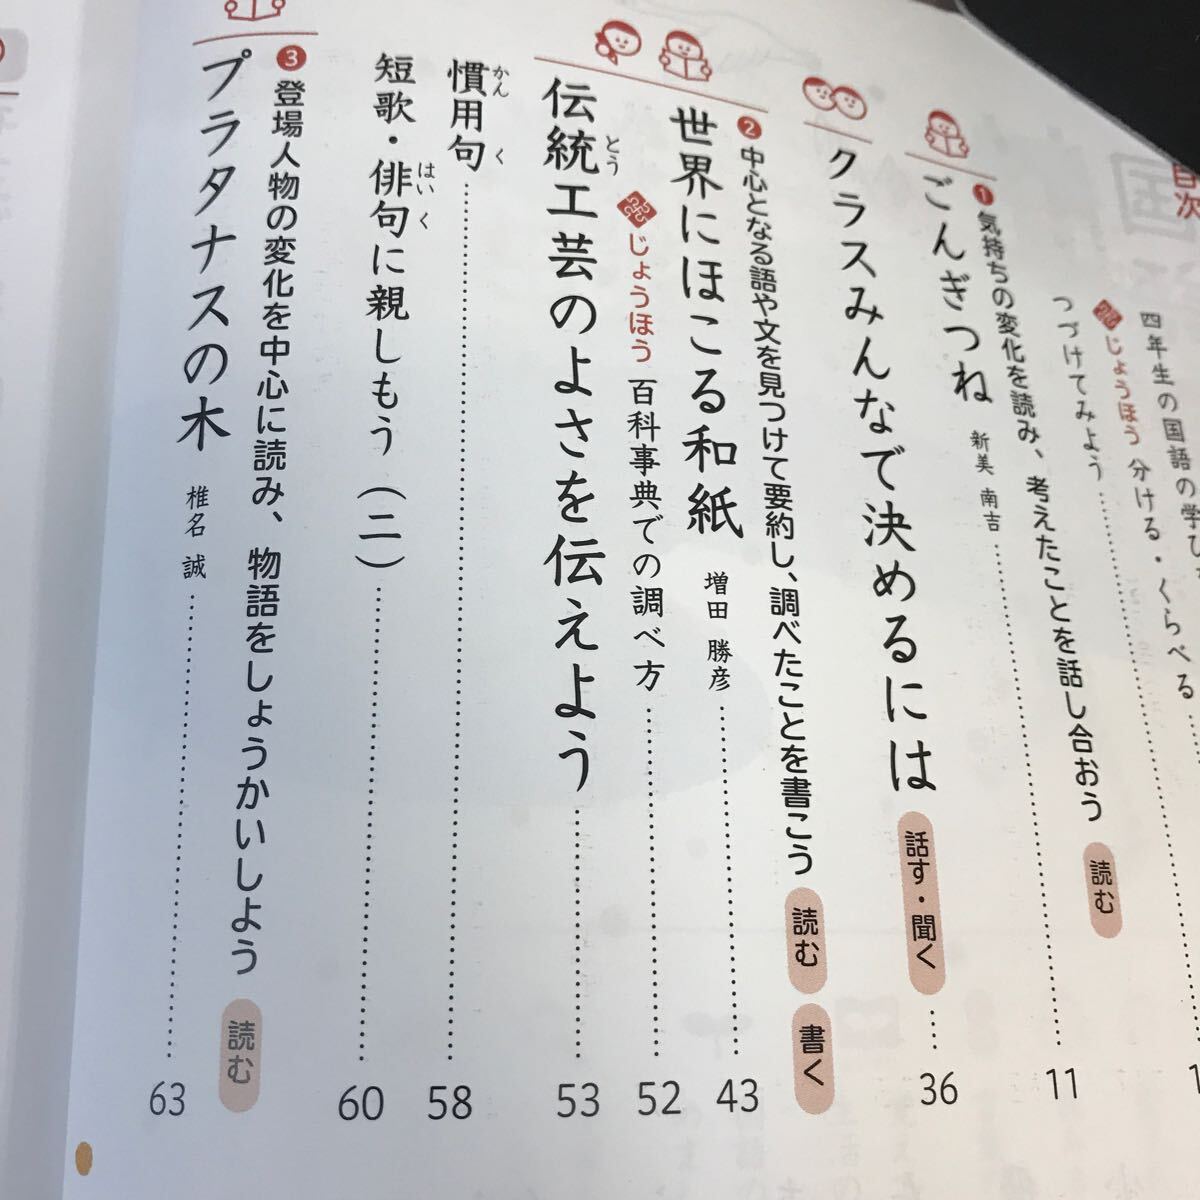 目次
四年生の国語の学び
つづけてみよう
じょうほう 分ける・くらべる
❶ 気持ちの変化を読み、考えたことを話し合おう 読む
ごんぎつね 新美 南吉 11
クラスみんなで決めるには 話す・聞く 36
❷ 中心となる語や文を見つけて要約し、調べたことを書こう 読む 書く
世界にほこる和紙 増田 勝彦 43
じょうほう 百科事典での調べ方 52
伝統工芸のよさを伝えよう 53
とう
慣用句 58
かん く
短歌・俳句に親しもう(二) 60
はい く
❸ 登場人物の変化を中心に読み、物語をしょうかいしよう 読む
プラタナスの木 椎名 誠 63